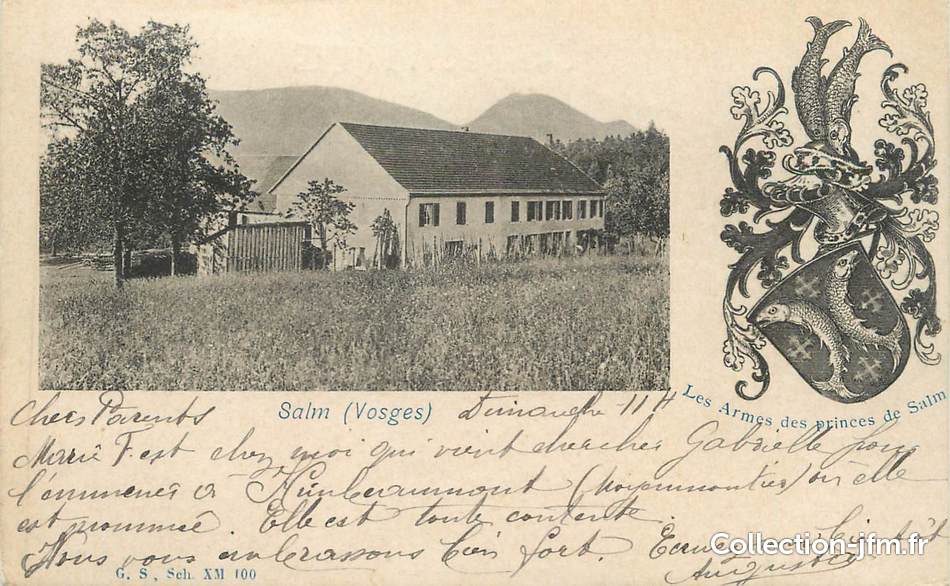 Salm (Vosges)
Les Armes des princes de Salm
Chers Parents Dimanche 11 H
Marie F est chez moi qui vient chercher Gabrielle pour
l'emmener à (Moyenmoutier) où elle
est nommée. Elle est toute contente.
Nous vous embrassons bien fort. bientôt
Augustin
G. S., Sch. XM 100
Collection-jfm.fr